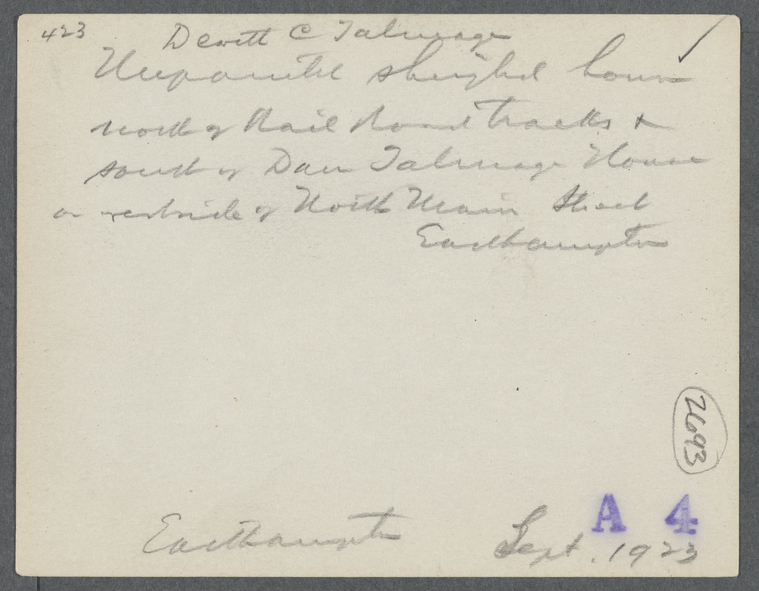 423
Dewitt C Talmage
Unpainted shingled house
north of Rail Road tracks &
south of Dan Talmage House
on west side of North Main Street
Easthampton
2693
A 4
Easthampton Sept. 1923